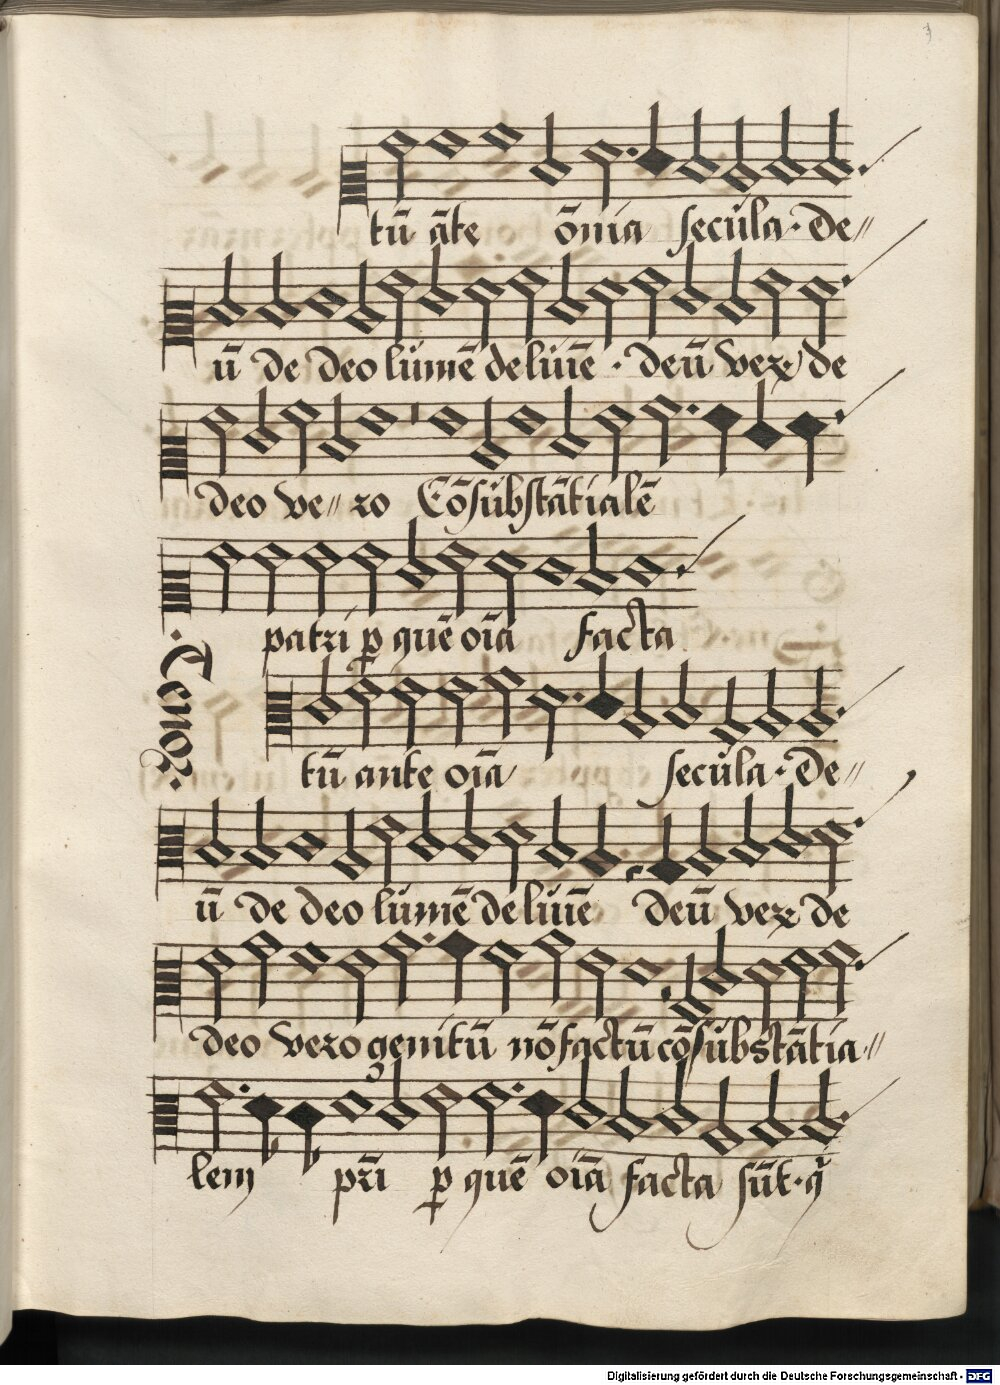 tū āte ōnia secula · De〃
ū de deo lumē de lūīe · deū vex de
deo ve〃ro Cōsubstātialē
patri ꝑ quē oīa facta
Tenor
tū ante oīa secula · De〃
ū de deo lumē de lūīe deū vex de
deo vero genitū nō factū cōsubstātia〃
lem pr̄i ꝑ quē oīa facta sūt · q̄
Digitalisierung gefördert durch die Deutsche Forschungsgemeinschaft - DFG